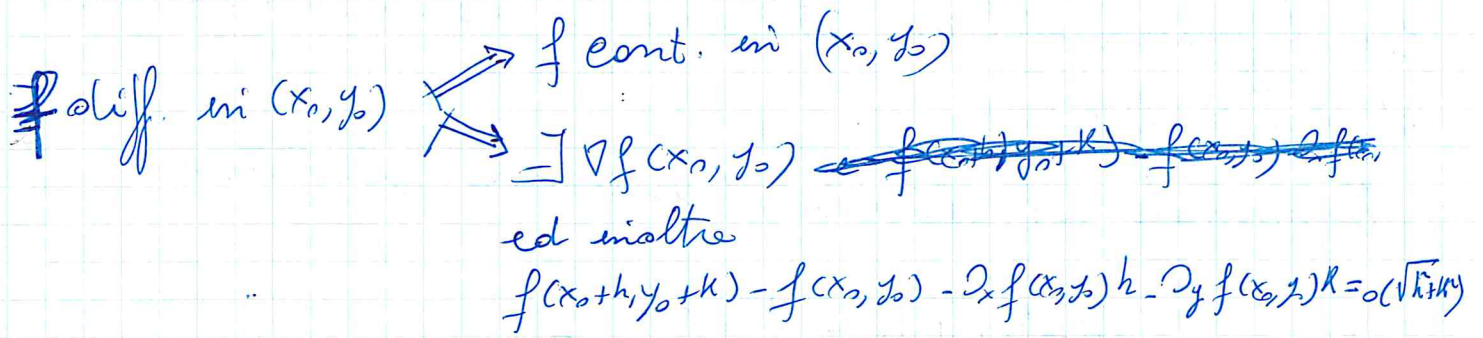 f cont. in (x₀, y₀)
f diff. in (x₀, y₀) ⇒
∃ ∇f(x₀, y₀)
ed inoltre
f(x₀+h, y₀+k) - f(x₀, y₀) - ∂ₓf(x₀, y₀)h - ∂ᵧf(x₀, y₀)k = o(√h²+k²)